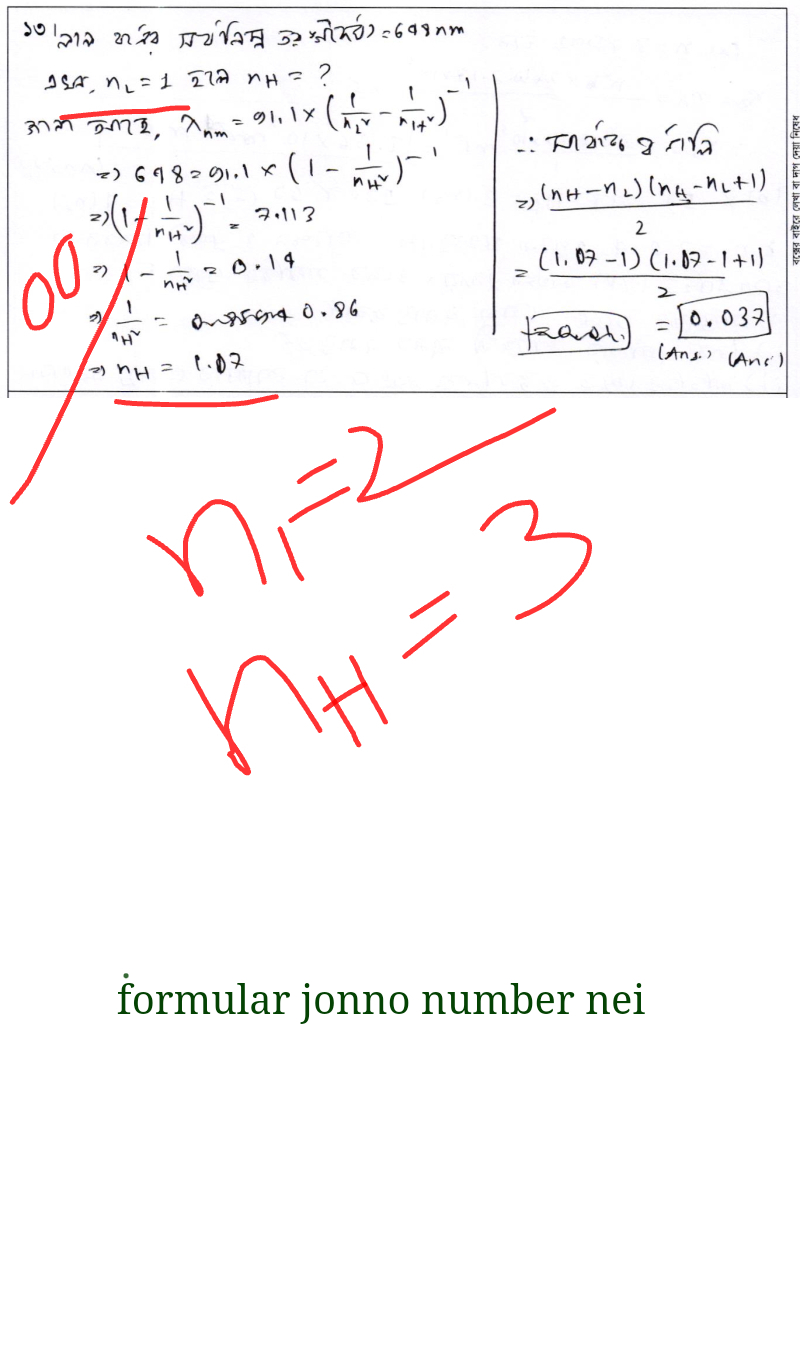 ১৩। লাল বর্ণের সর্বনিম্ন তরঙ্গদৈর্ঘ্য = 648nm
এখন, n_L = 1 হলে n_H = ?
আমরা জানি, λ_nm = 91.1 × (1/n_L² - 1/n_H²)^-1
=> 648 = 91.1 × (1 - 1/n_H²)^-1
=> (1 - 1/n_H²)^-1 = 7.113
=> 1 - 1/n_H² = 0.14
=> 1/n_H² = 0.86
=> n_H = 1.07
∴
=> (n_H - n_L)(n_H - n_L + 1) / 2
= (1.07 - 1)(1.07 - 1 + 1) / 2
= 0.037
(Ans.) (Ans.)
বক্সের বাইরে লেখা বা দাগ দেয়া নিষেধ
00
n_1 = 2
n_H = 3
formular jonno number nei